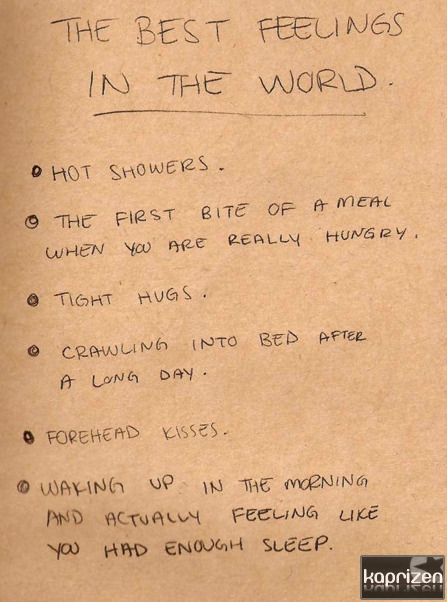 THE BEST FEELINGS
IN THE WORLD.
HOT SHOWERS.
THE FIRST BITE OF A MEAL
WHEN YOU ARE REALLY HUNGRY.
TIGHT HUGS.
CRAWLING INTO BED AFTER
A LONG DAY.
FOREHEAD KISSES.
WAKING UP IN THE MORNING
AND ACTUALLY FEELING LIKE
YOU HAD ENOUGH SLEEP.
kaprizen